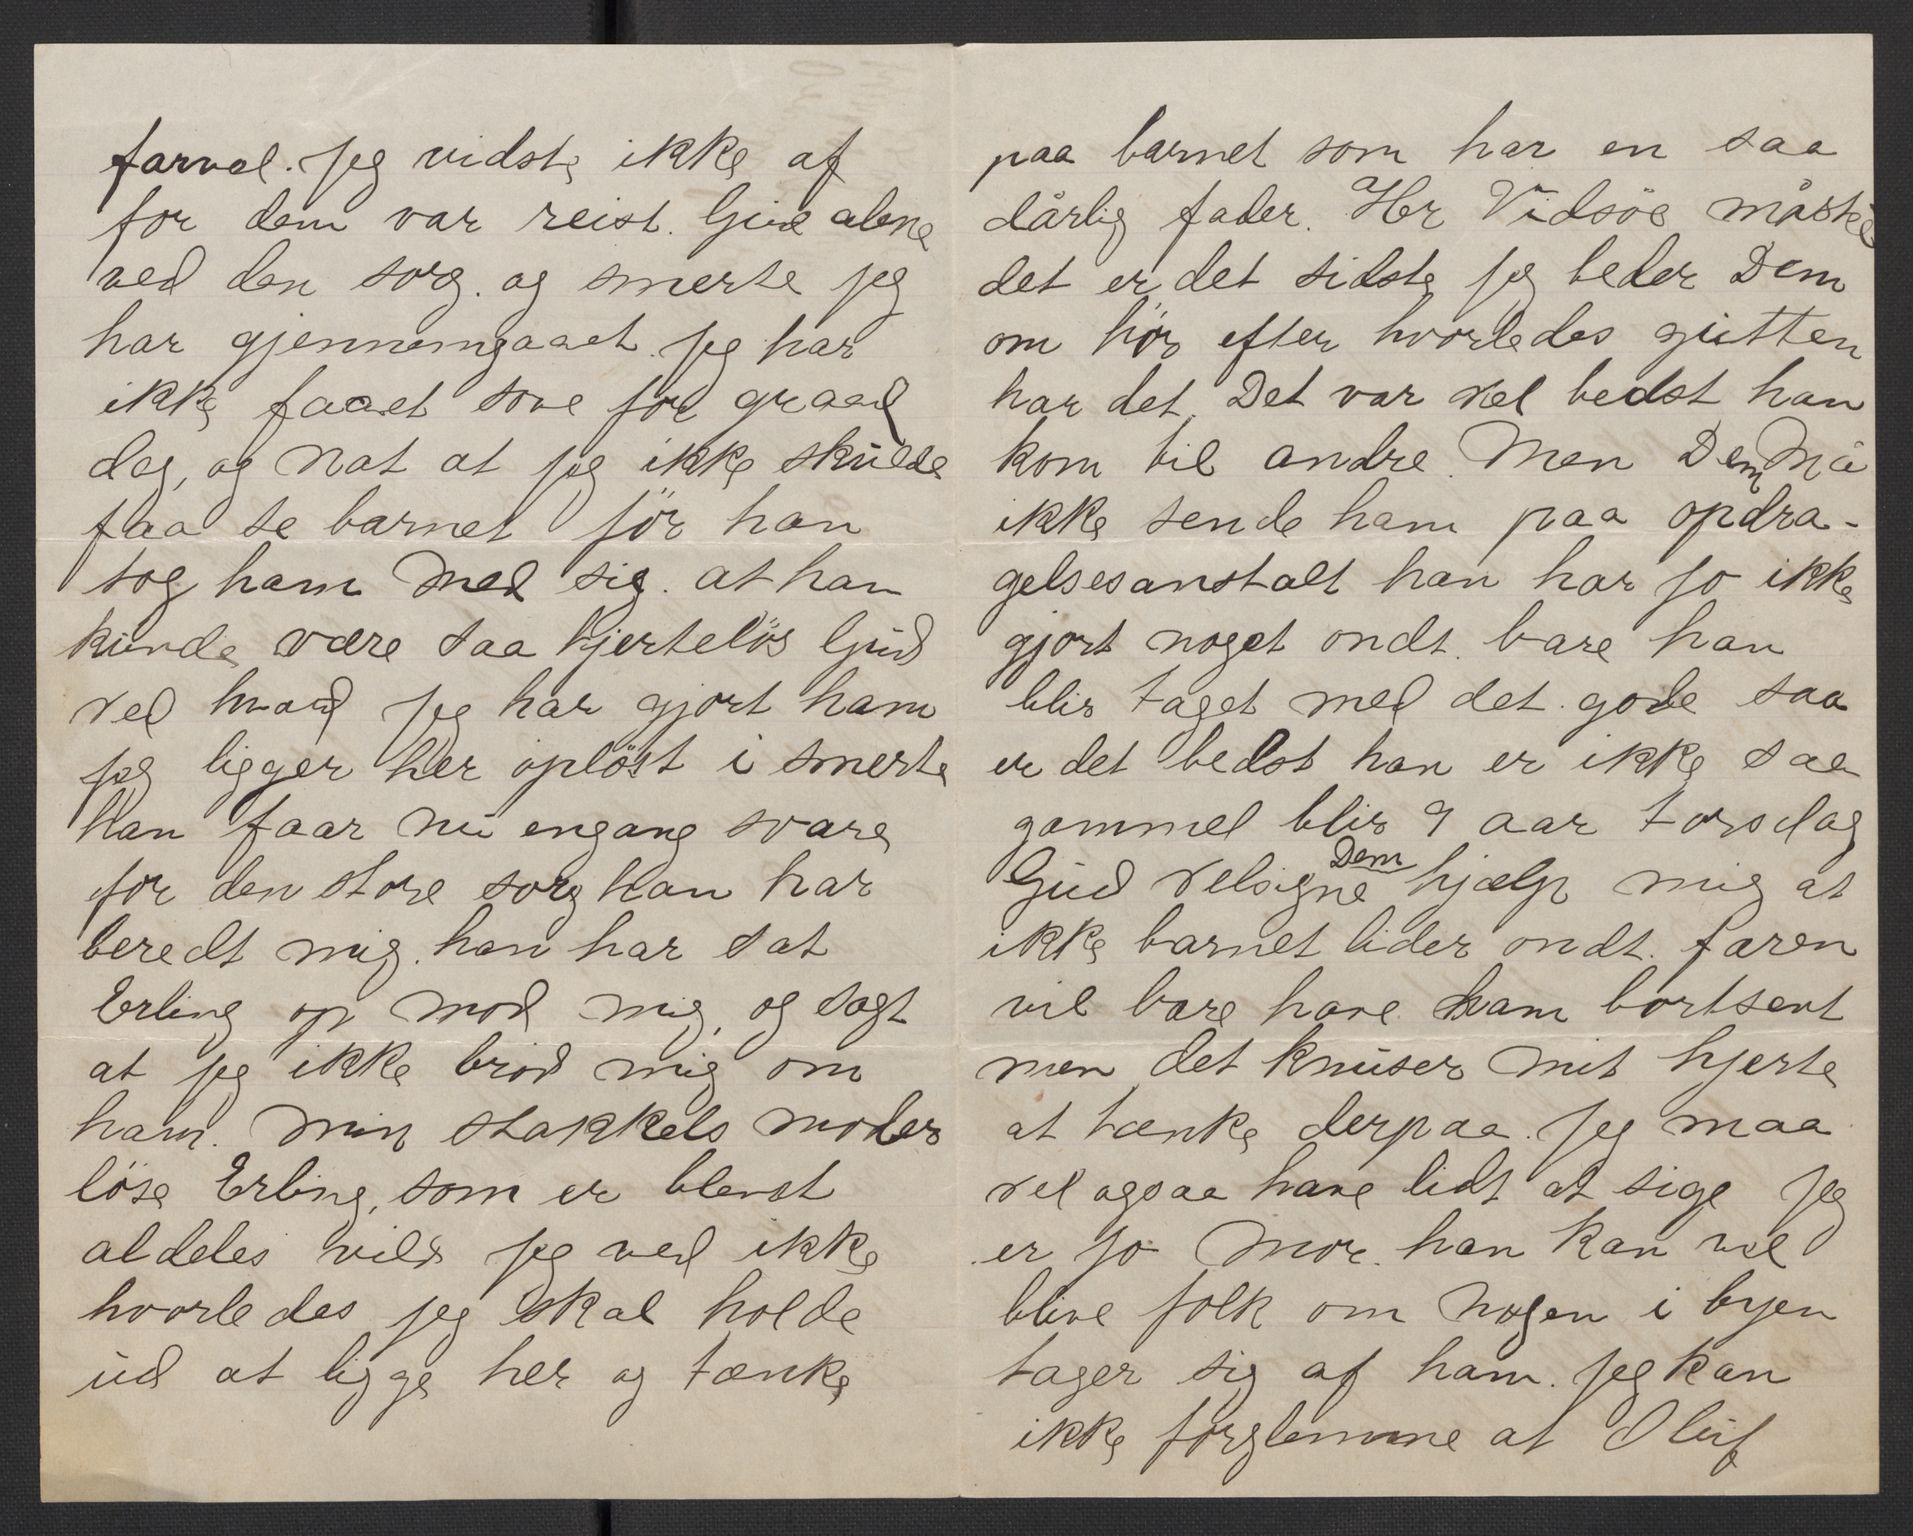 farvel. jeg vidste ikke af
for dem var reist. Gud alene
ved den sorg. og smerte jeg
har gjennemgaaet. jeg har
ikke faaet sove for graad
dag, og nat at jeg ikke skulde
faa se barnet för han
tog ham med sig. at han
kunde være saa hjertelös Gud
ved hvad jeg har gjort ham
jeg ligger her oplöst i smerte
han faar nu engang svare
for den store sorg han har
beredt mig. han har sat
Erling op mod mig, og sagt
at jeg ikke bröd mig om
ham. min stakkels moder
löse Erling, som er blevet
aldeles vild jeg ved ikke
hvorledes jeg skal holde
ud at ligge her og tænke
paa barnet som har en saa
dårlig fader. Her Vidsöe måske
det er det sidste jeg beder Dem
om hör efter hvorledes gutten
har det. Det var vel bedst han
kom til andre. Men Dem Må
ikke sende ham paa opdra-
gelsesanstalt han har jo ikke
gjort noget ondt. bare han
blir taget med det gode saa
er det bedst han er ikke saa
gammel blir 9 aar torsdag
Gud velsigne Dem hjælp mig at
ikke barnet lider ondt. faren
vil bare have ham bortsent
men det knuser mit hjerte
at tænke derpaa. jeg maa
vel ogsaa have lidt at sige jeg
er jo mor. han kan vel
blive folk om nogen i byen
tager sig af ham. jeg kan
ikke forglemme at Oluf